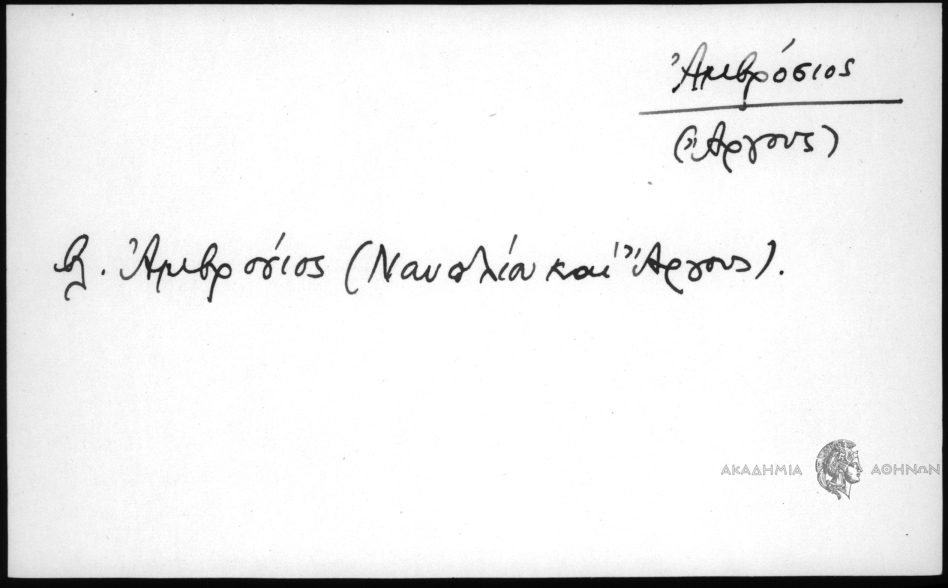 Ἀμβρόσιος
(Ἄργους)
βλ. Ἀμβρόσιος (Ναυπλίου καὶ Ἄργους).
ΑΚΑΔΗΜΙΑ ΑΘΗΝΩΝ